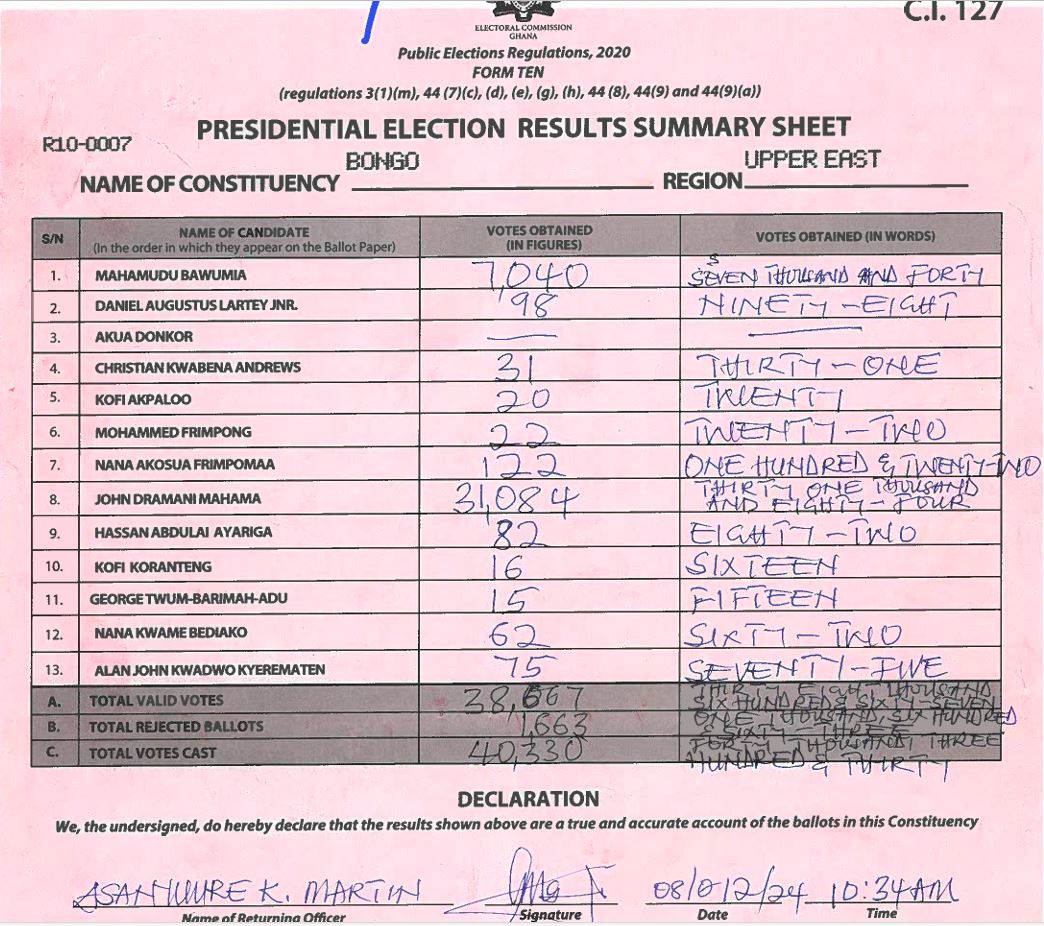 C.I. 127
ELECTORAL COMMISSION
GHANA
Public Elections Regulations, 2020
FORM TEN
(regulations 3(1)(m), 44 (7)(c), (d), (e), (g), (h), 44 (8), 44(9) and 44(9)(a))
PRESIDENTIAL ELECTION RESULTS SUMMARY SHEET
R10-0007
NAME OF CONSTITUENCY BONGO REGION UPPER EAST
S/N NAME OF CANDIDATE (In the order in which they appear on the Ballot Paper) VOTES OBTAINED (IN FIGURES) VOTES OBTAINED (IN WORDS)
1. MAHAMUDU BAWUMIA 7,040 SEVEN THOUSAND AND FORTY
2. DANIEL AUGUSTUS LARTEY JNR. 98 NINETY-EIGHT
3. AKUA DONKOR — —
4. CHRISTIAN KWABENA ANDREWS 31 THIRTY-ONE
5. KOFI AKPALOO 20 TWENTY
6. MOHAMMED FRIMPONG 22 TWENTY-TWO
7. NANA AKOSUA FRIMPOMAA 122 ONE HUNDRED & TWENTY-TWO
8. JOHN DRAMANI MAHAMA 31,084 THIRTY ONE THOUSAND AND EIGHTY-FOUR
9. HASSAN ABDULAI AYARIGA 82 EIGHTY-TWO
10. KOFI KORANTENG 16 SIXTEEN
11. GEORGE TWUM-BARIMAH-ADU 15 FIFTEEN
12. NANA KWAME BEDIAKO 62 SIXTY-TWO
13. ALAN JOHN KWADWO KYEREMATEN 75 SEVENTY-FIVE
A. TOTAL VALID VOTES 38,667 THIRTY EIGHT THOUSAND SIX HUNDRED & SIXTY-SEVEN
B. TOTAL REJECTED BALLOTS 1,663 ONE THOUSAND, SIX HUNDRED & SIXTY-THREE
C. TOTAL VOTES CAST 40,330 FORTY THOUSAND, THREE HUNDRED & THIRTY
DECLARATION
We, the undersigned, do hereby declare that the results shown above are a true and accurate account of the ballots in this Constituency
K. MARTIN 08/012/24 10:34AM
Name of Returning Officer Signature Date Time